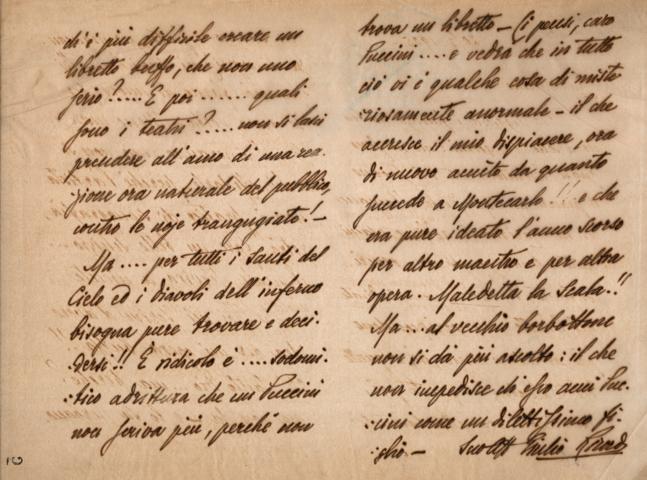 di i più difficile creare un
libretto boffo, che non uno
serio?.... E poi ...... quali
sono i teatri?.... non si lasci
prendere all'amo di una rea-
zione ora naturale del pubblico,
contro le noje trangugiate! -
Ma .... per tutti i Santi del
Cielo ed i diavoli dell'inferno
bisogna pure trovare e deci-
dersi!! È ridicolo è .... sodomi-
tico adrittura che un Puccini
non scriva più, perchè non
trova un libretto - Ci pensi, caro
Puccini .... e vedrà che in tutto
ciò vi è qualche cosa di miste
riosamente anormale - il che
accresce il mio dispiacere, ora
di nuovo acuito da quanto
succede a Montecarlo!! e che
era pure ideato l'anno scorso
per altro maestro e per altra
opera. Maledetta la Scala!!
Ma... al vecchio borbottone
non si dà più ascolto: il che
non impedisce ch'esso ami Puc-
cini come un dilettissimo fi-
glio - Giulio Ricordi